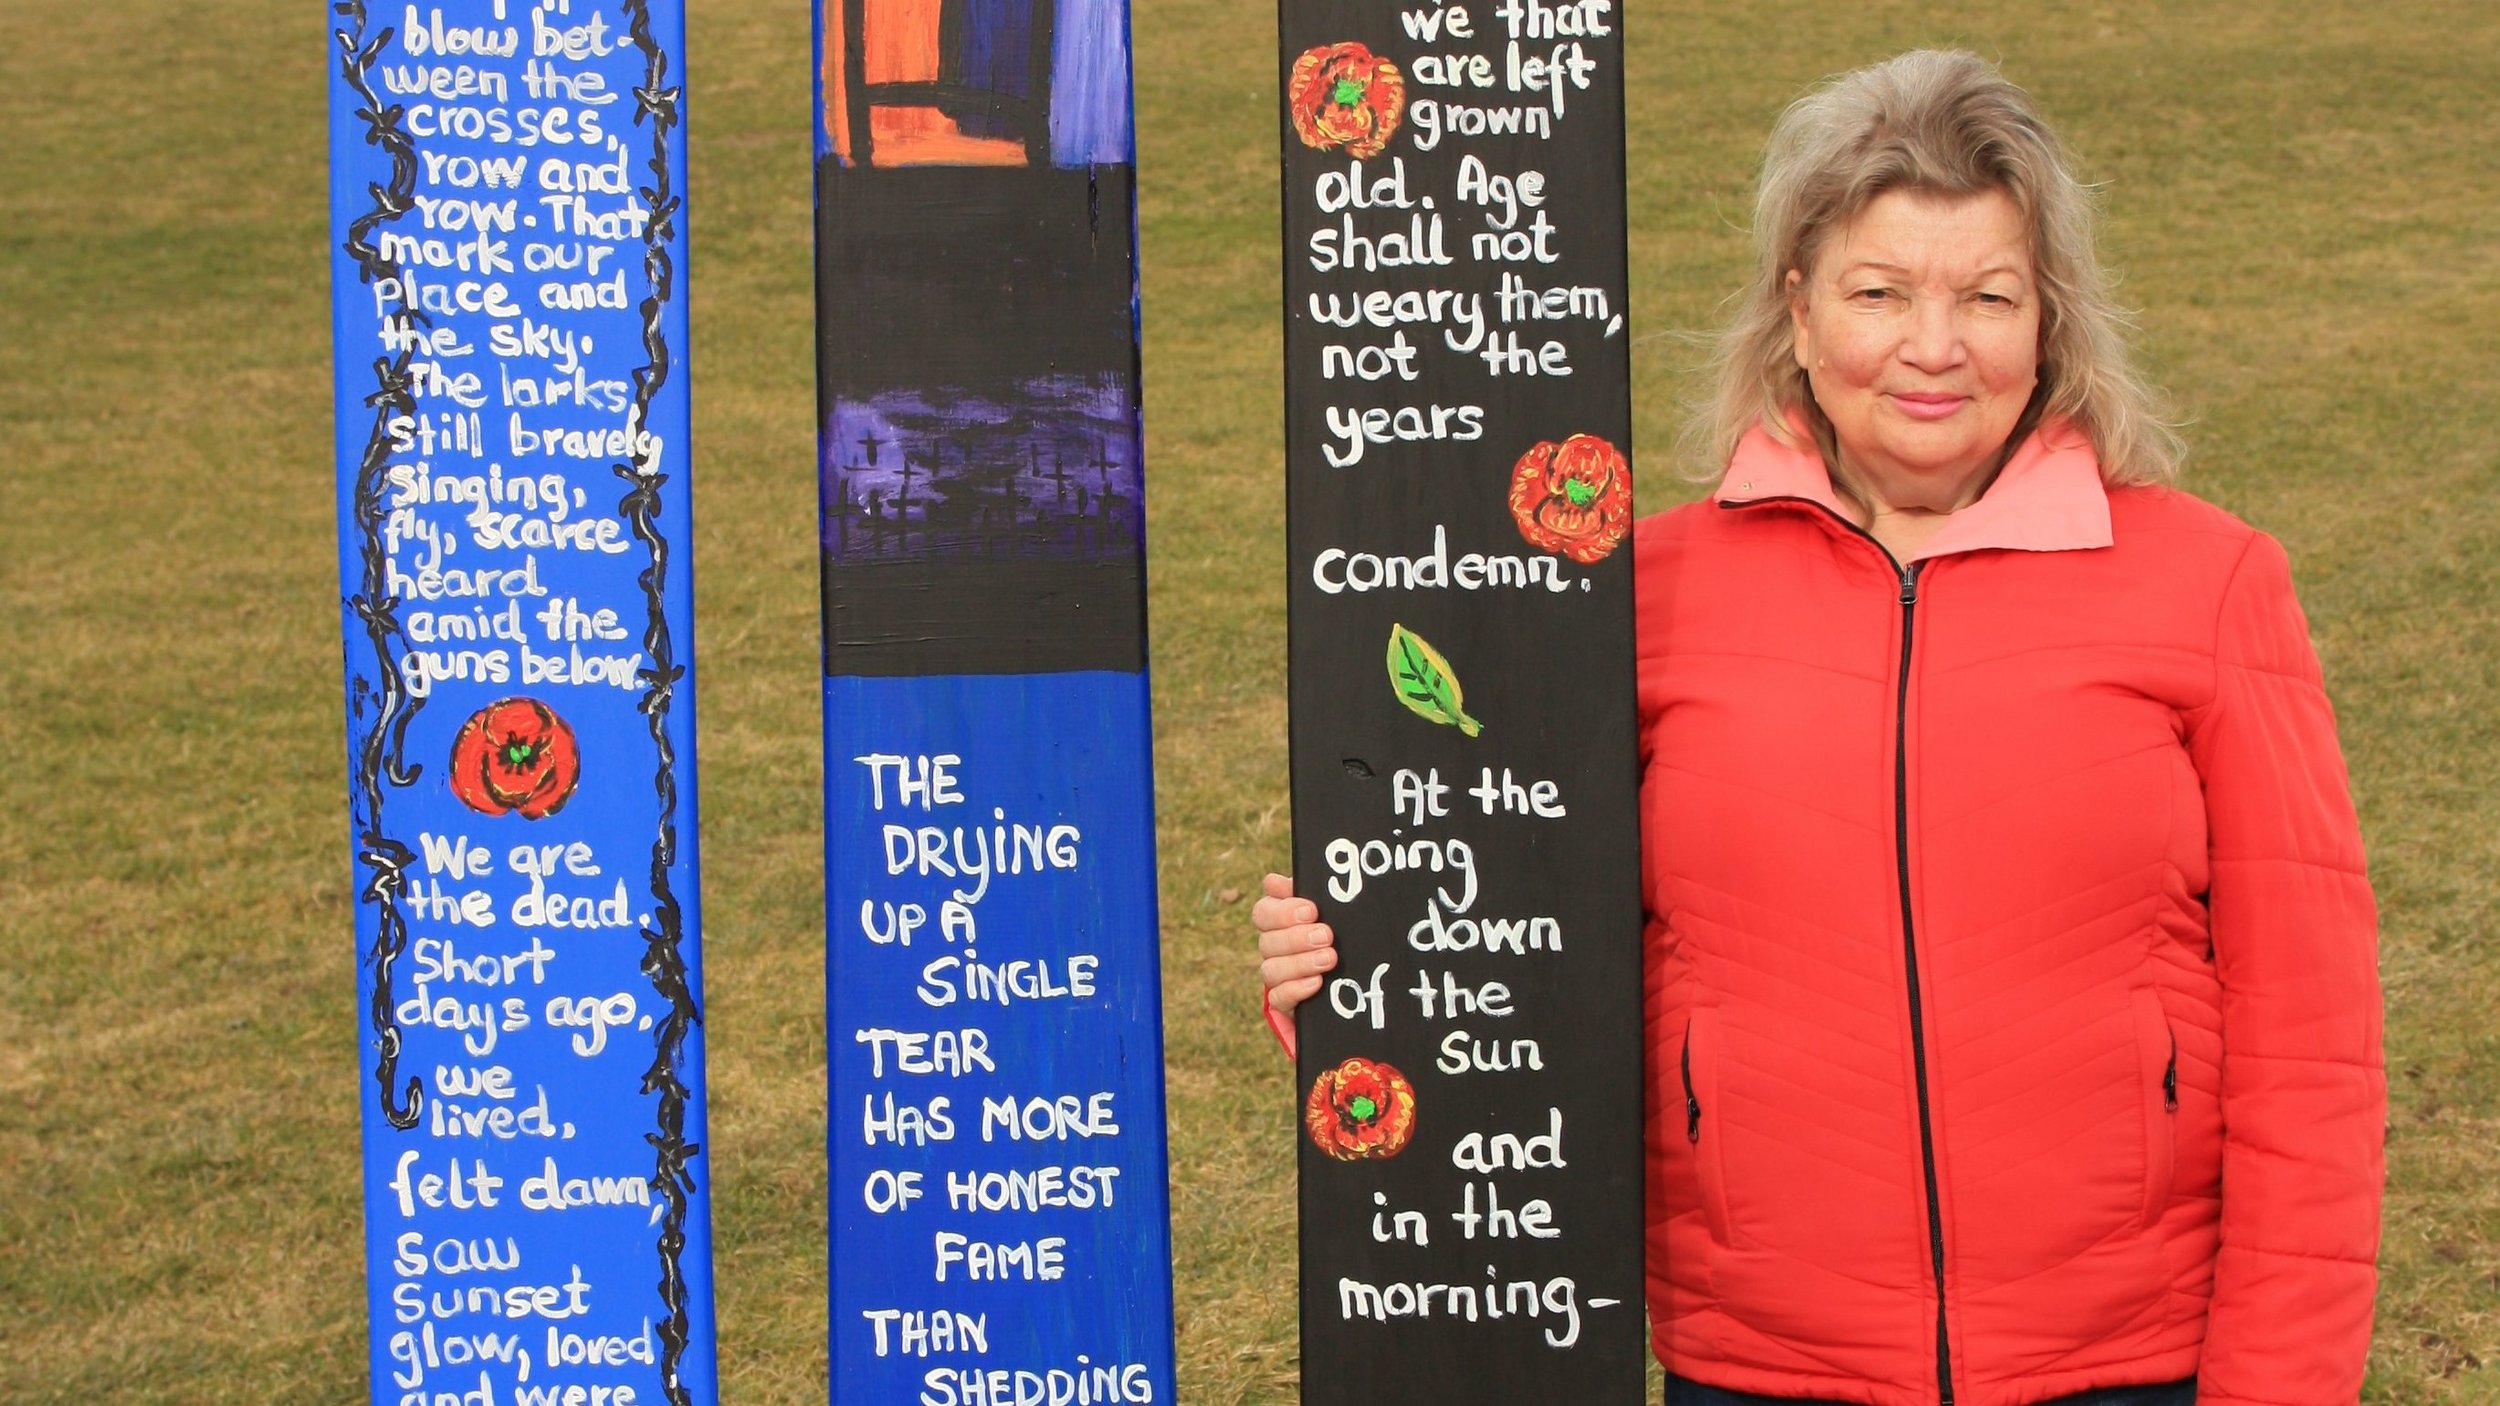 blow bet-
ween the
crosses,
row and
row. That
mark our
place and
the sky.
The larks,
still bravely
singing,
fly, scarce
heard
amid the
guns below.
We are
the dead.
Short
days ago,
we
lived,
felt dawn,
saw
sunset
glow, loved
and were
THE
DRYING
UP A
SINGLE
TEAR
HAS MORE
OF HONEST
FAME
THAN
SHEDDING
we that
are left
grown
old. Age
shall not
weary them,
not the
years
condemn.
At the
going
down
of the
sun
and
in the
morning-